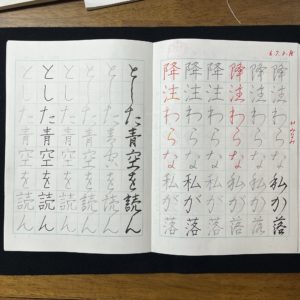 降注わらな私が落
降注わらな私が落
降注わらな私が落
降注わらな私が落
降注わらな私が落
降注わらな私が落
とした青空を読ん
とした青空を読ん
とした青空を読ん
とした青空を読ん
とした青空を読ん
とした青空を読ん